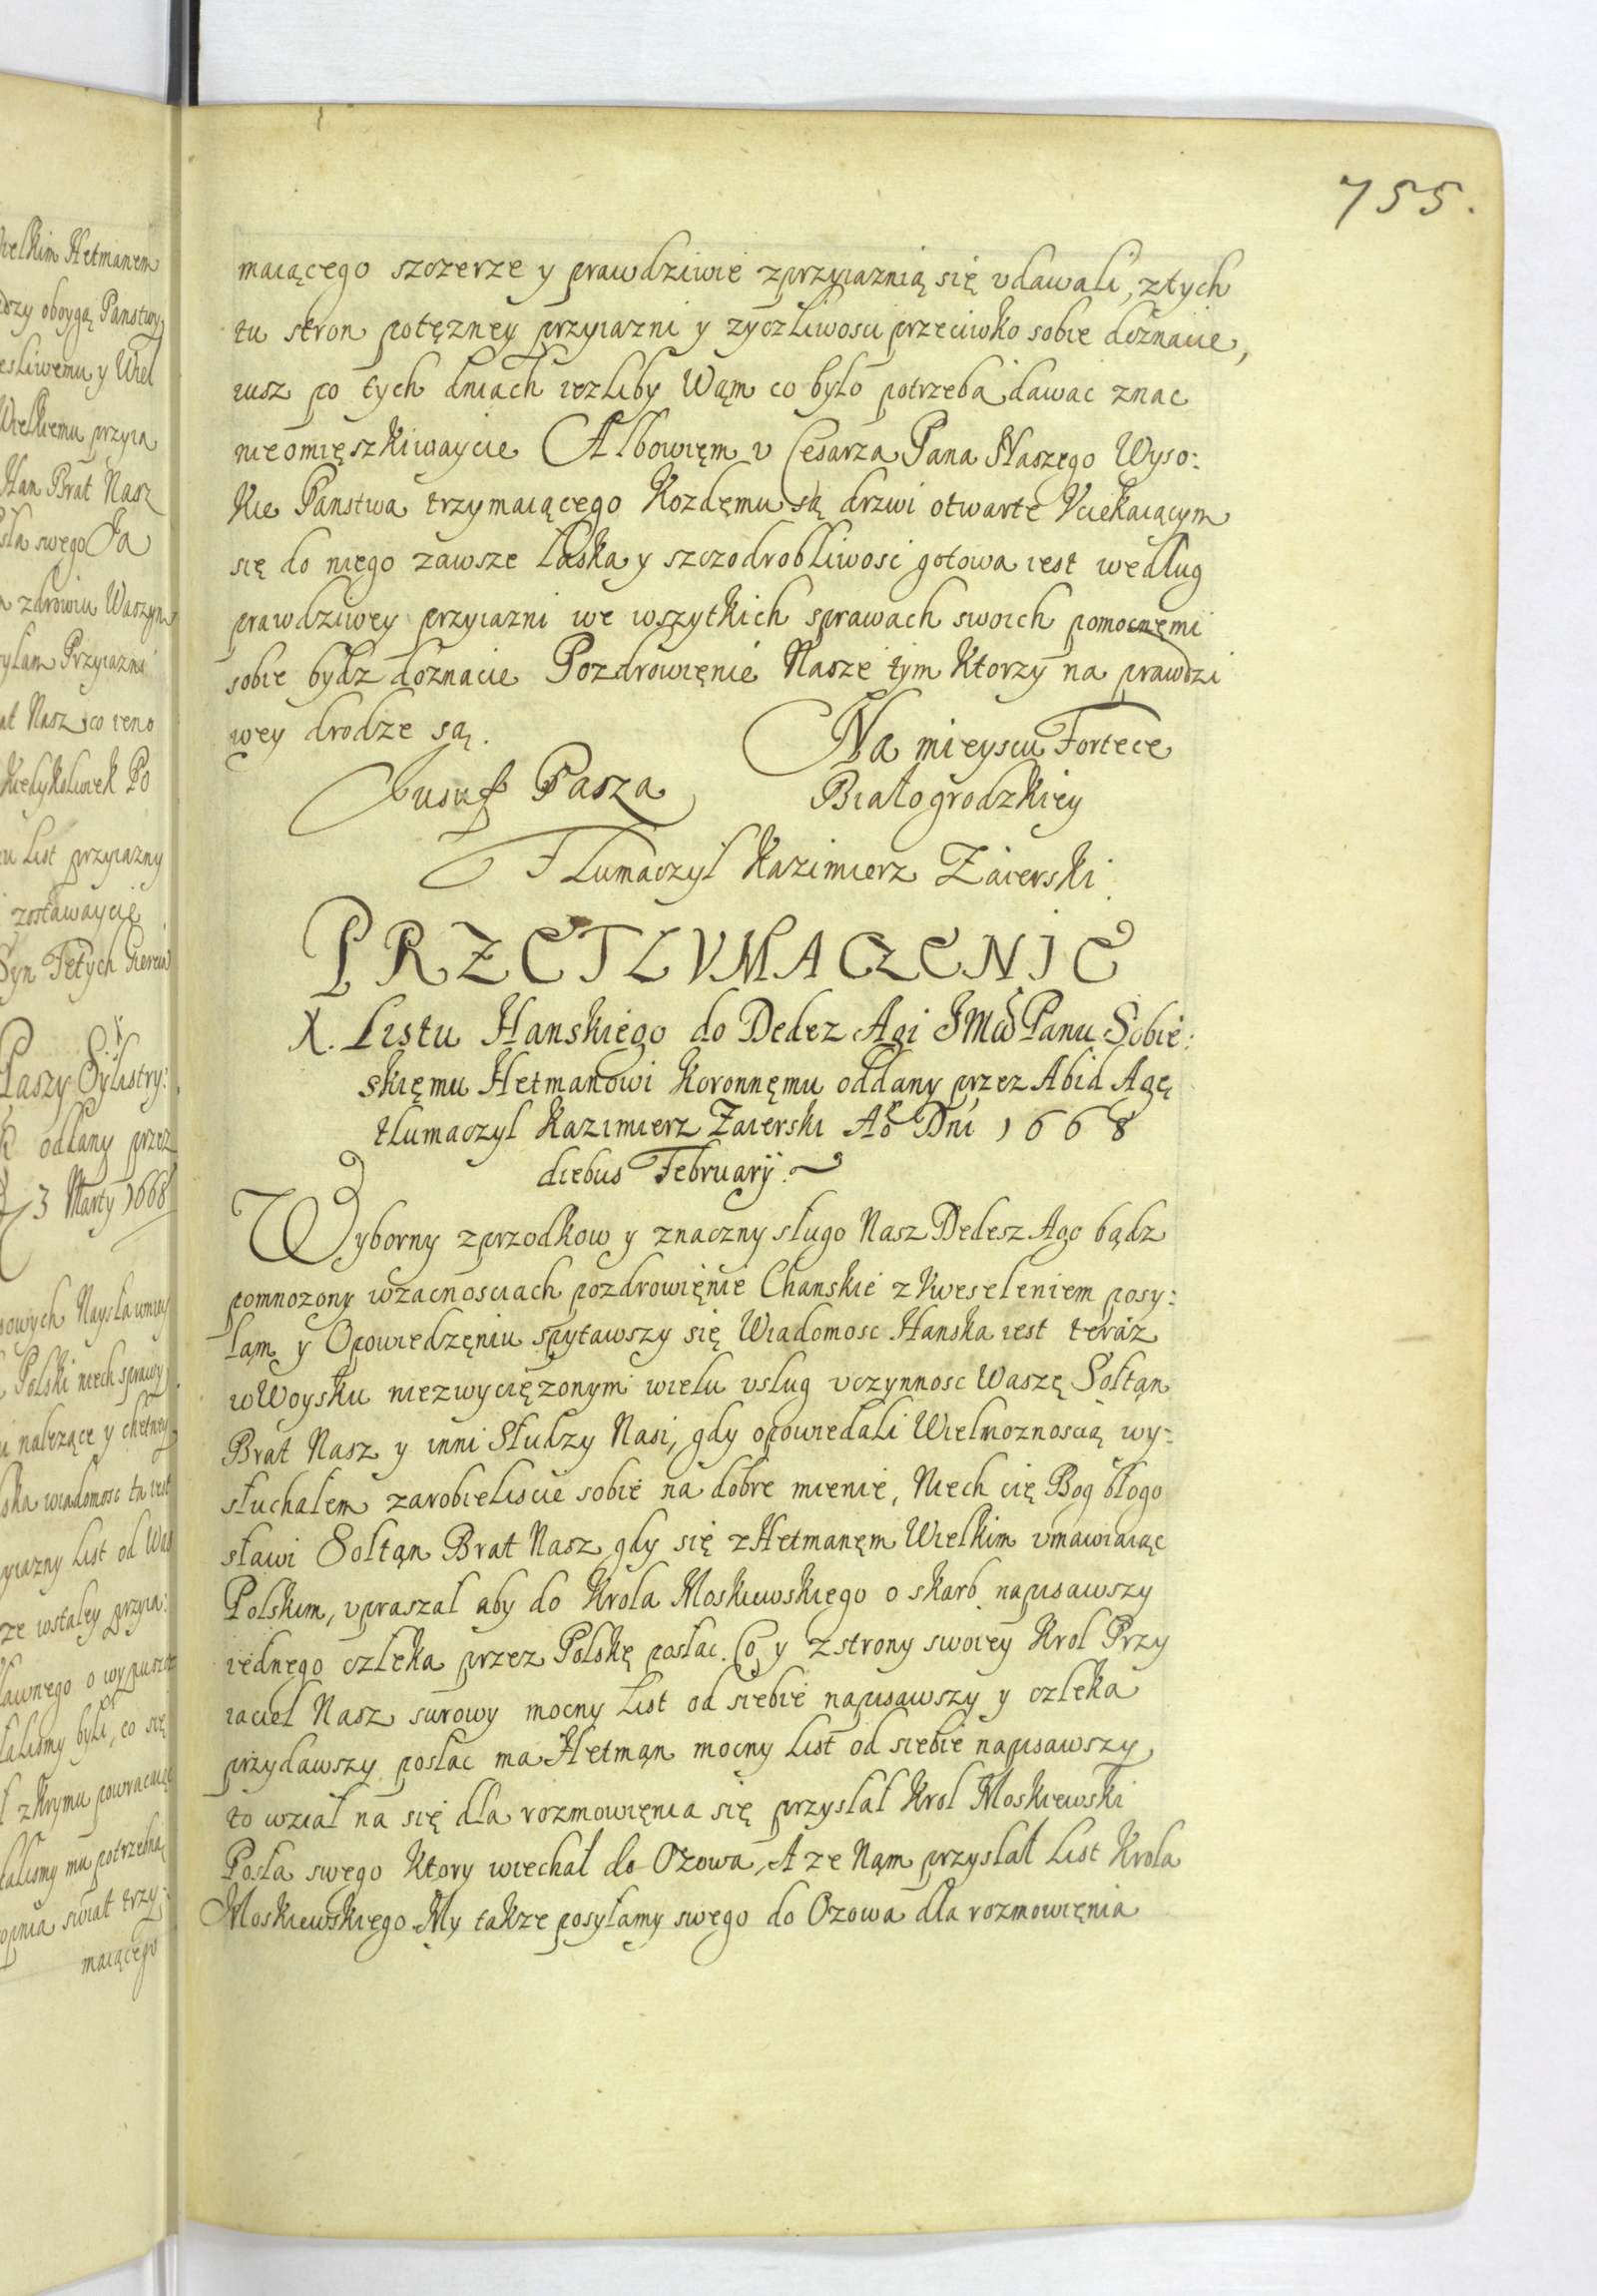 755.
maiącego szczerze y prawdziwie zprzyiaznią się vdawali, ztych
tu stron potęzney przyiazni y zyczliwosci przeciwko sobie doznacie,
iusz po tych dniach iezliby Wąm co było potrzeba dawac znac
nieomięszkiwaycie Albowięm v Cesarza Pana Naszego Wyso:
kie Panstwa trzymaiącego Kozdęmu są drzwi otwarte Vciekaiącym
się do niego zawsze łaska y szczodrobliwosc gotowa iest według
prawdziwey przyiazni we wszytkich sprawach swoich pomocnęmi
sobie bydz doznacie Pozdrowięnie Nasze tym Ktorzy na prawdzi
wey drodze są.
Na mieyscu Fortece
Jusuf Pasza
Białogrodzkiey
Tlumaczył Kazimierz Zaierski
PRZETLVMACZENIE
X. Listu Hanskiego do Dedez Agi JMCi Panu Sobie:
skięmu Hetmanowi Koronnęmu oddany przez Abid Agę
tlumaczyl Kazimierz Zaierski Ao Dni 1668
diebus February.
Wyborny zprzodkow y znaczny sługo Nasz Dedesz Ago bądz
pomnozony wzacnosciach pozdrowięnie Chanskie z Vweseleniem posy:
łąm y Opowiedzęniu spytawszy się Wiadomosc Hanska iest teraz
wWoysku niezwycięzonym wielu vsług vczynnosc Waszę Sołtąn
Brat Nasz y inni Słudzy Nasi, gdy opowiedali Wielmoznoscią wy:
słuchałem zarobieliscie sobie na dobre mienie, Niech cię Bog błogo
sławi Sołtąn Brat Nasz gdy się zHetmanęm Wielkim vmawiaiąc
Polskim, vpraszał aby do Krola Moskiewskiego o skarb napisawszy
iednego człeka przez Polskę posłac. Co y zstrony swoiey Krol Przy
iaciel Nasz surowy mocny List od siebie napisawszy y człeka
przydawszy posłac ma Hetmąn mocny List od siebie napisawszy
to wział na się dla rozmowięnia się przysłał Krol Moskiewski
Posła swego Ktory wiechał do Ozowa, A ze Nąm przysłał List Krola
Moskiewskiego My takze posyłamy swego do Ozowa dla rozmowięnia